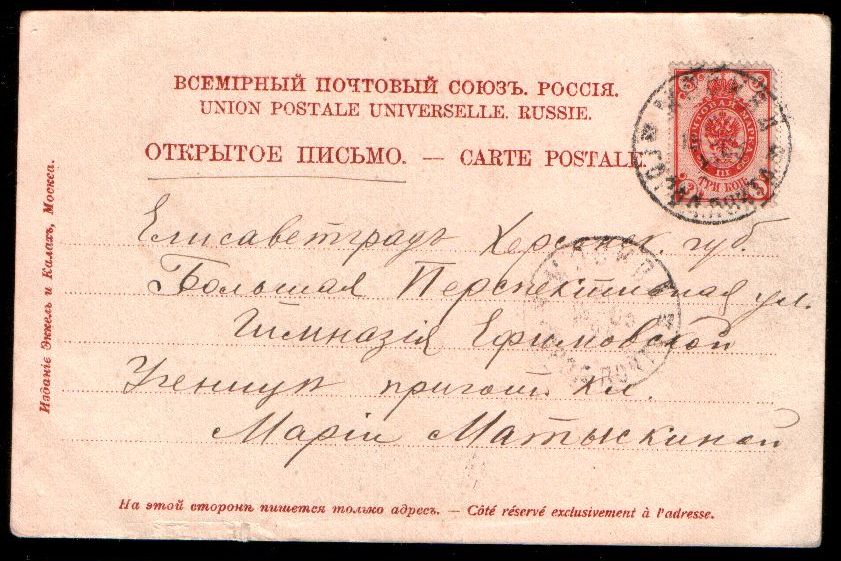 ВСЕМІРНЫЙ ПОЧТОВЫЙ СОЮЗЪ. РОССІЯ.
UNION POSTALE UNIVERSELLE. RUSSIE.
ОТКРЫТОЕ ПИСЬМО. — CARTE POSTALE.
ПОЧТОВАЯ МАРКА
3
ТРИ КОП.
3
Елисаветградъ Херсонск. губ.
Большая Перспективная ул.
Гимназія Ефимовской
пригот. кл.
Маріи Матыскиной
На этой сторонѣ пишется только адресъ. — Côté réservé exclusivement à l'adresse.
Изданіе Эккель и Калахъ, Москва.